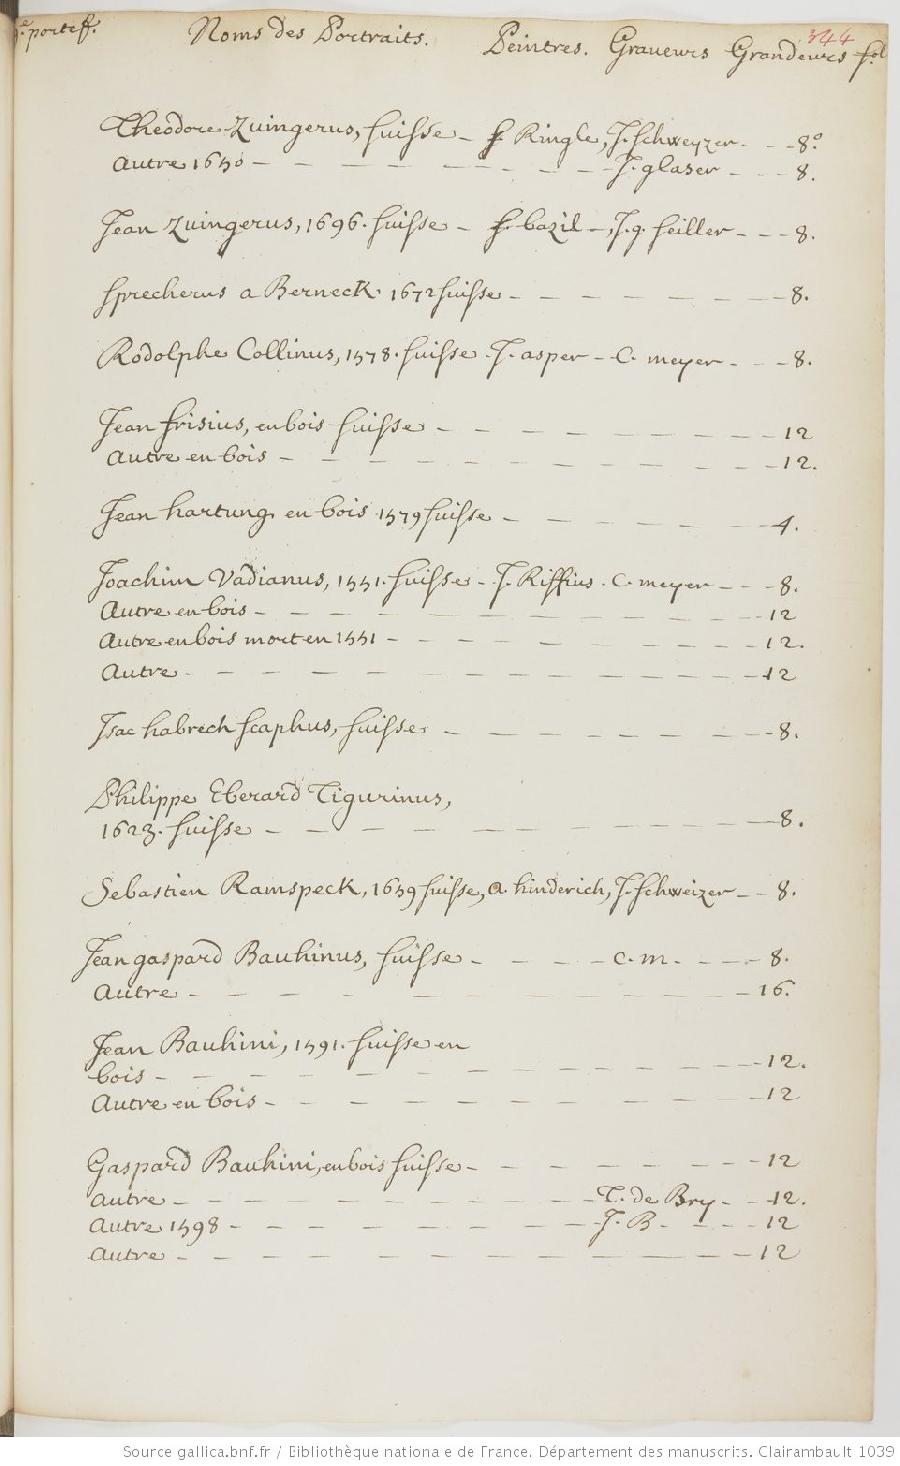 e. portef. Noms des Portraits. Peintres. Graveurs Grandeurs fol
344
Theodore Zuingerus, suisse - f Ringle, J. Schweyzer - - 8.º
Autre 1650 - - - - - - - J. glaser - - 8.
Jean Zuingerus, 1696. suisse - f. bazil -, J. g. seiller - - - 8.
Sprecherus a Berneck 1672 suisse - - - - - - - 8.
Rodolphe Collinus, 1578. suisse. J. asper - C. meyer - - - 8.
Jean frisius, en bois suisse - - - - - - - 12
Autre en bois - - - - - - - - - 12.
Jean hartung en bois 1579 suisse - - - - - - 4.
Joachim Vadianus, 1551. suisse - J. Riffius. C. meyer - - - 8.
Autre en bois - - - - - - - - - 12
Autre en bois mort en 1551 - - - - - - - 12.
Autre - - - - - - - - - - 12
Isac habrech scaphus, suisse - - - - - - - 8.
Philippe Eberard Tigurinus,
1623. suisse - - - - - - - - - 8.
Sebastien Ramspeck, 1659 suisse, a hinderich, J. Schweizer - - 8.
Jean gaspard Bauhinus, suisse - - - - c. m. - - - 8.
Autre - - - - - - - - - - 16.
Jean Bauhini, 1591. suisse en
bois - - - - - - - - - - 12.
Autre en bois - - - - - - - - - 12
Gaspard Bauhini, en bois suisse - - - - - - - 12
Autre - - - - - - - - T. de Bry - - 12.
Autre 1598 - - - - - - - J. B - - - 12
Autre - - - - - - - - - - 12
Source gallica.bnf.fr / Bibliothèque nationale de France. Département des manuscrits. Clairambault 1039